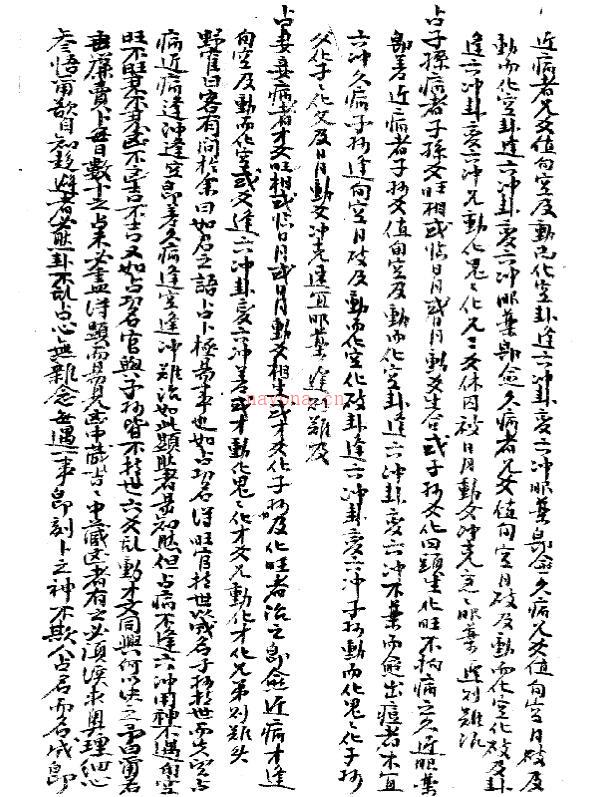 近病者兄爻值旬空及動而化空卦逢六冲卦變六冲服藥即愈久病兄爻值旬空日破及
動而化空卦逢六冲卦變六冲服藥即愈久病者兄爻值旬空月破及動而化空化破及卦
逢六冲卦變六冲兄動化鬼鬼化兄兄爻休囚被日月動爻冲克急急服藥遲則難治
占子孫病者子孫爻旺相或临日月或日月動爻生合或子孙爻化回頭生化旺不拘病之久近服藥
即善近病者子孙爻值旬空及動而化空卦逢六冲卦變六冲不藥而愈出痘者不宜
六冲久病子孙逢旬空月破及動而化空化破卦逢六冲卦變六冲子孙動而化鬼鬼化子孙
父化子子化父及日月動爻冲克速宜服藥遲則難及
占妻妾病者才爻旺相或临日月或日月動爻相生或才爻化子孙及化旺者治之即愈近病才逢
旬空及動而化空或爻逢六冲卦變六冲善或才動化鬼鬼化才爻兄動化才化兄弟則難矣
野雀曰客有問於余曰如君之語占卜極易事也如占功名得旺官持世以成名子孙持世而失望占
病近病逢冲逢空即善久病逢空逢冲難治如此顯然者易知然但占病不逢六冲用神不遇旬空
旺不旺衰不衰既不言吉不言又如占功名官與子孙皆不持世六爻乱動才父同興何以决之予曰甯名
毋廉費卜每日數十之占未必盡得顯而易見 中藏 者有之必須深求奥理細心
參悟甯欲自知趋避者必熊卦不乱占心無雜念每遇一事即刻卜之神不欺人占名而名成即